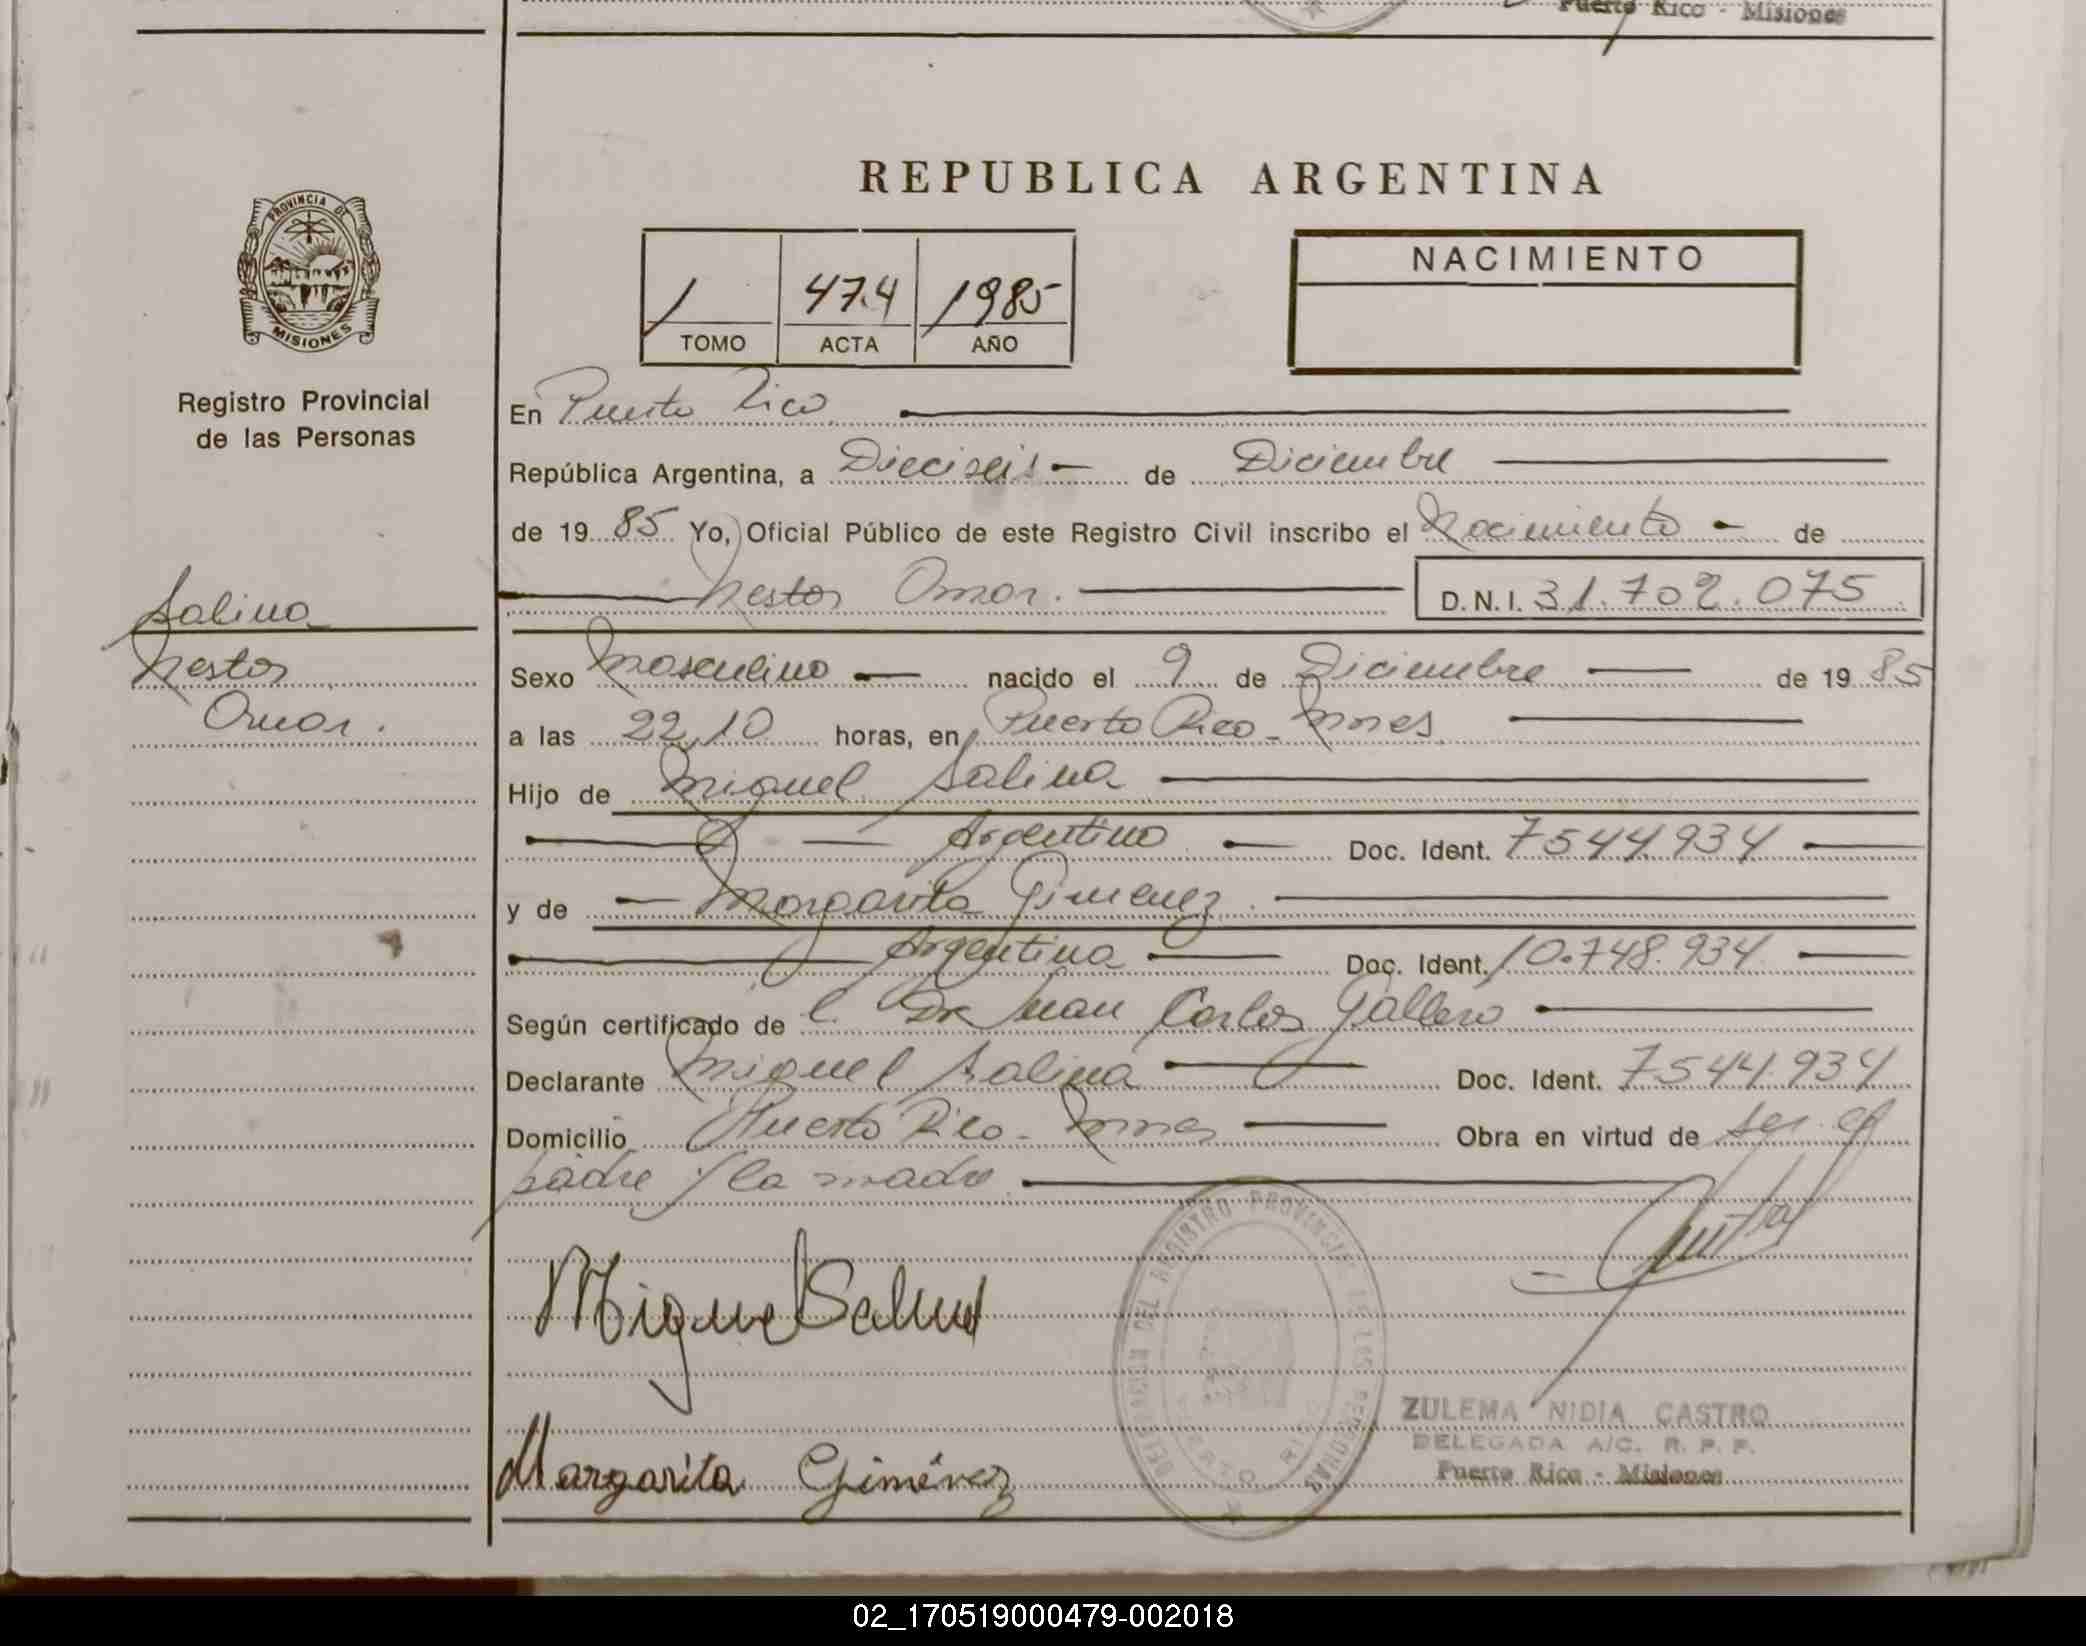 Puerto Rico - Misiones
REPUBLICA ARGENTINA
PROVINCIA DE
MISIONES
Registro Provincial
de las Personas
1 474 1985
TOMO ACTA AÑO
NACIMIENTO
En Puerto Rico
República Argentina, a Dieciseis de Diciembre
de 19 85 Yo, Oficial Público de este Registro Civil inscribo el Nacimiento de
Nestor Omar. D.N.I. 31.702.075
Salina
Nestor
Omar.
Sexo Masculino nacido el 9 de Diciembre de 19 85
a las 22,10 horas, en Puerto Rico - Mnes
Hijo de Miguel Salina
Argentino Doc. Ident. 7544.934
y de Margarita Gimenez
Argentina Doc. Ident. 10.748.934
Según certificado de l. Dr Juan Carlos Gallero
Declarante Miguel Salina Doc. Ident. 7544.934
Domicilio Puerto Rico - Mnes Obra en virtud de ser el
padre y la madre
Miguel
Margarita Giménez
DELEGACION DEL REGISTRO PROVINCIAL DE LAS PERSONAS
PUERTO RICO
ZULEMA NIDIA CASTRO
DELEGADA A/C. R. P. P.
Puerto Rico - Misiones
02_170519000479-002018